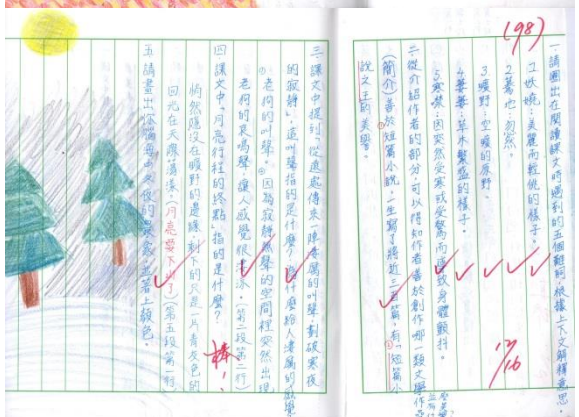 (98)
一.請圈出在閱讀課文時遇到的五個難詞,根據上下文解釋意思。
1.妖嬈:美麗而輕佻的樣子。
2.驀地:忽然。
3.曠野:空曠的原野。
4.萋萋:草木繁盛的樣子。
5.寒噤:因突然受寒或受驚而導致身體顫抖。
12/16
二.從介紹作者的部分,可以得知作者善於創作哪一類文學作
(簡介)善於短篇小說,一生寫了將近三百篇,有「短篇小
說之王的美譽。
三.課文中提到「從遠處傳來一陣淒厲的叫聲,劃破寒夜
的寂靜」,這叫聲指的是什麼?為什麼給人淒厲的感覺
①老狗的叫聲。②因為寂靜無聲的空間裡突然出現
老狗的哀鳴聲,讓人感覺很淒涼。(第二段第二行)
四.課文中,「月亮行程的終點」指的是什麼?
棒!
悄然隱沒在曠野的邊緣,剩下的只是一片青灰色的
回光在天痕蕩漾。(月亮要下山了)(第五段第一行)
五.請畫出你腦海中文後的寒冬景色,並著上顏色。